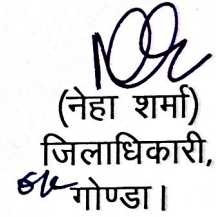 (नेहा शर्मा)
जिलाधिकारी,
गोण्डा।